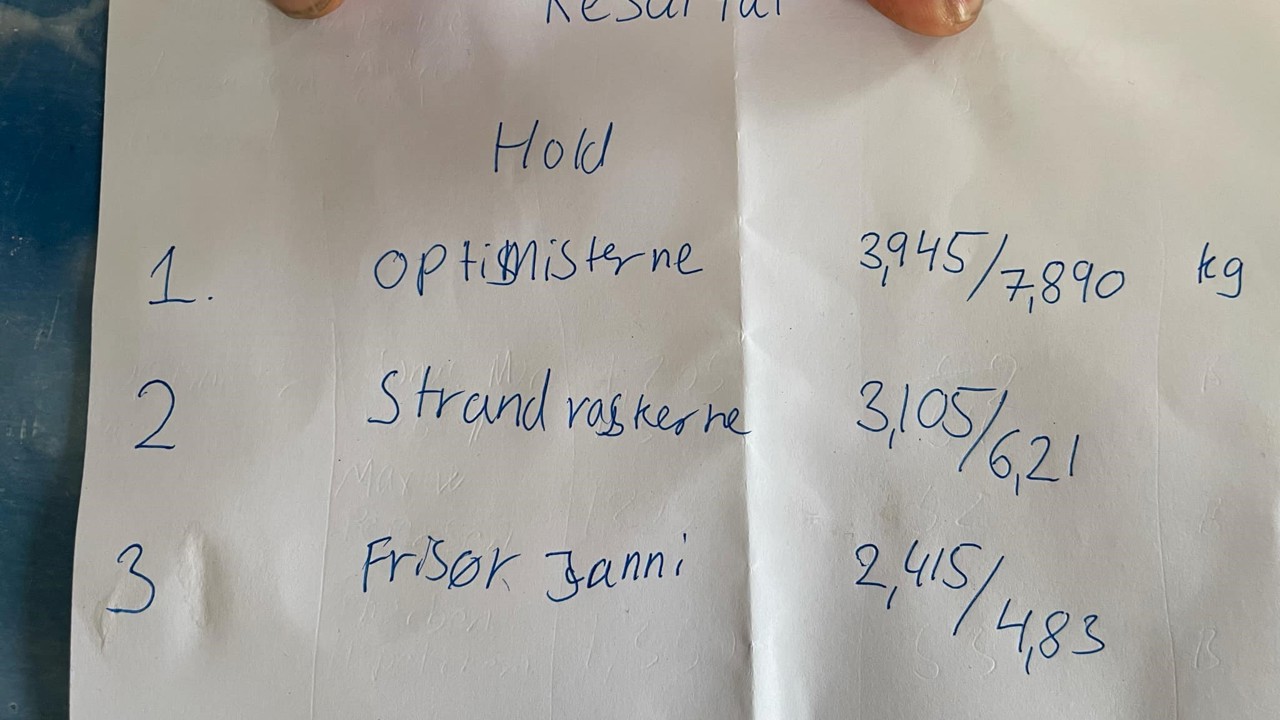 Resultat
Hold
1. Optimisterne 3,945/7,890 kg
2 Strandvaskerne 3,105/6,21
3 Frisør Janni 2,415/4,83